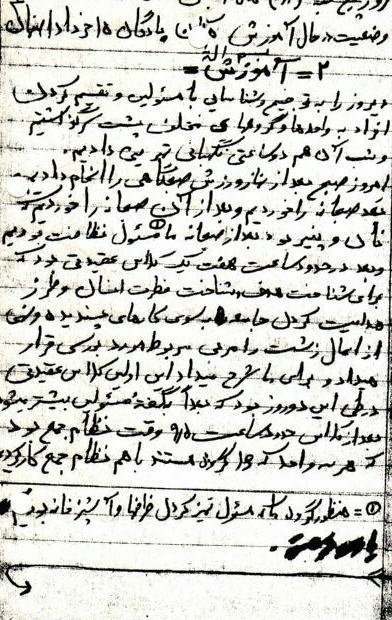 وضعیت در حال آموزش پادگان ۱۵ خرداد
۲ = آموزش =
دیروز را به توجیه و شناسایی با مسئولین و تقسیم کردن
افراد به واحدها و گروههای مختلف پشت سر گذاشتیم
و شب آن هم دو ساعتی نگهبانی تمرینی دادیم.
امروز صبح بعد از نماز ورزش صبحگاهی را انجام دادیم.
بعد صبحانه را خوردیم و بعد از آن صبحانه را خوردیم که
نان و پنیر بود بعد از صبحانه ما ① مسئول نظافت بودیم
و بعد در حدود ساعت هفت یک کلاس عقیدتی بود که
برای شناخت هدف و شناخت فطرت انسان و طرز
هدایت کردن جامعه بسوی کارهای پسندیده و نهی
از اعمال زشت را مربی مربوطه مورد بررسی قرار
میداد و برای ما شرح میداد این اولین کلاس عقیدتی
در طی این دو روز بود که بعداً بگفته مسئولین بیشتر میشود
بعد از کلاس حدود ساعت ۹/۵ وقت نظام جمع بود
که هر سه واحد که گردان هستند با هم نظام جمع کار کردیم
① = منظور گروه ما که مسئول تمیز کردن ظرفها و آشپزخانه بودیم